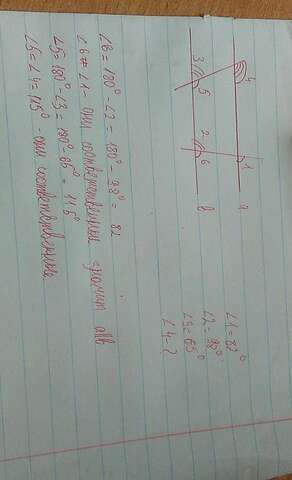 3
5
4
2
6
1
b
a
∠1=82°
∠2=98°
∠3=65°
∠4-?
∠6=180°-∠2=180°-98°=82
∠6 и ∠1- они соответственные значит a||b
∠5=180°-∠3=180°-65°=115°
∠5=∠4=115° - они соответственные